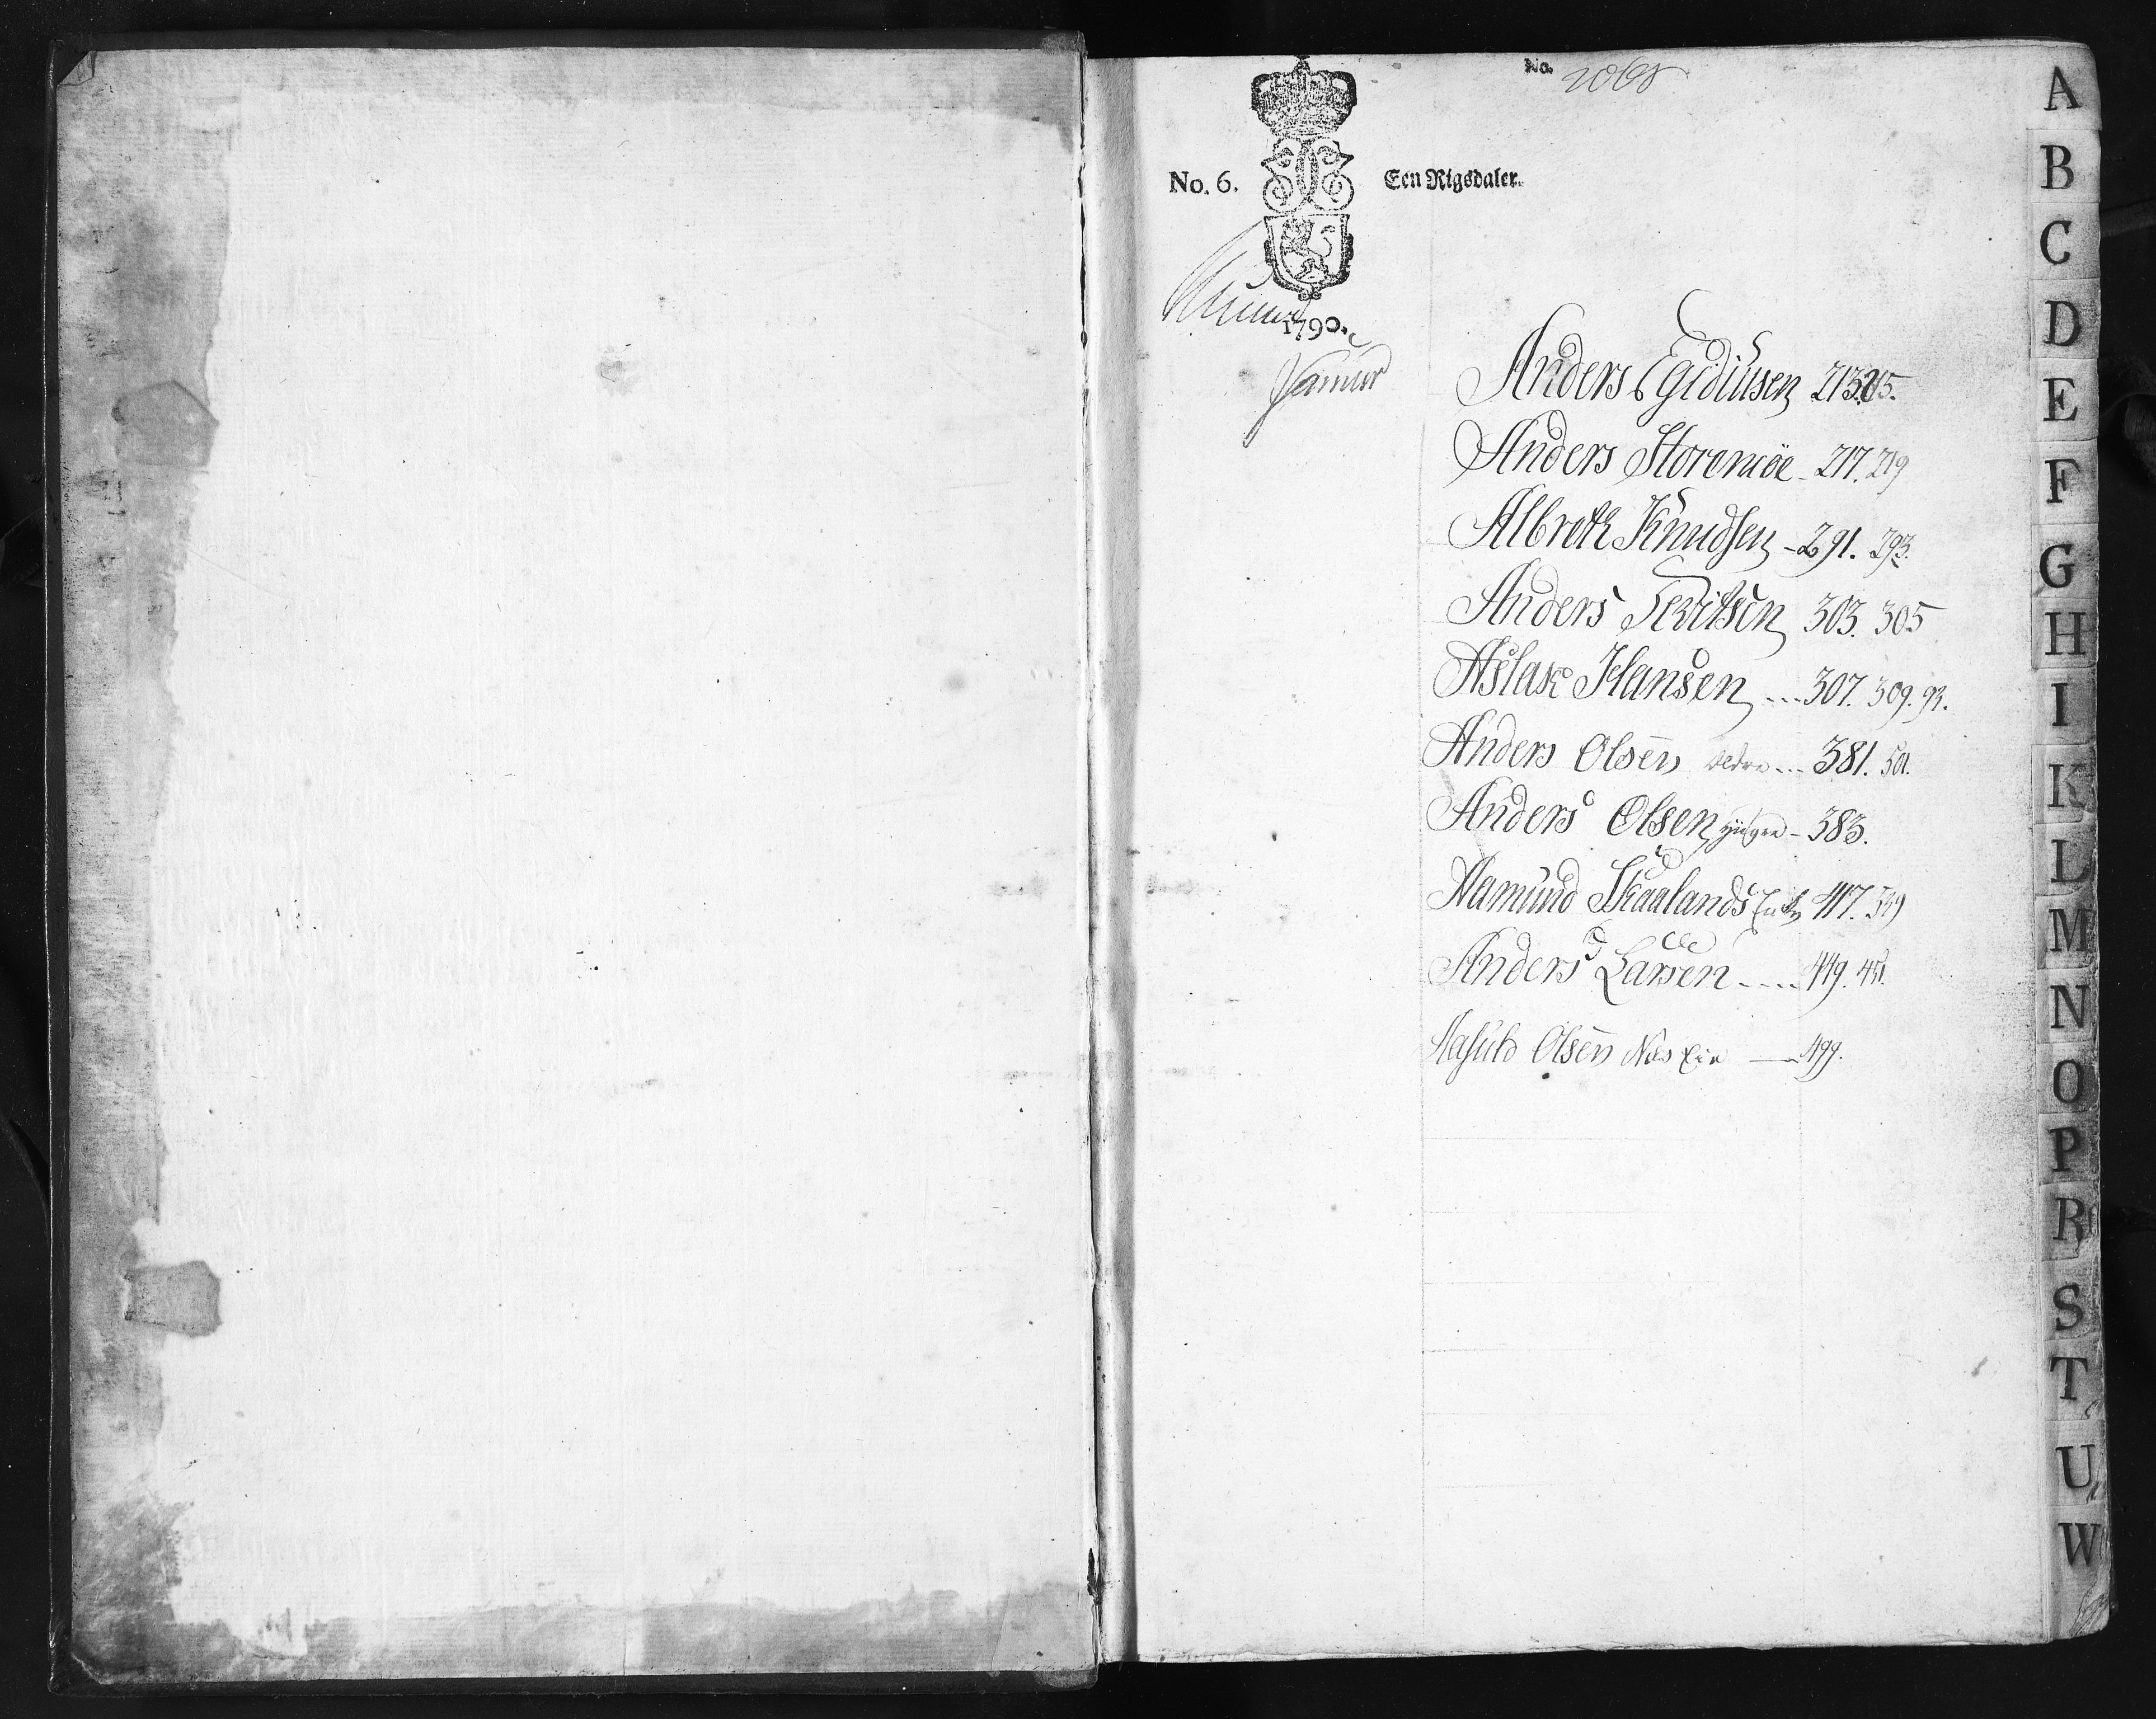 No. 2068
No. 6. Een Rigsdaler.
1790.
Anders Egidiusen 213. 215.
Anders Storemöe - 217. 219
Albreth Knudsen - 291. 293.
Anders Sevitsen 303. 305
Aslak Hansen ... 307. 309. 93.
Anders Olsen ældre ... 381. 501.
Anders Olsen yngre - 383.
Aamund Skaalands Enke 417. 549
Anders Larsen .... 449. 451.
Aasuld Olsen 499.
A
B
C
D
E
F
G
H
I
K
L
M
N
O
P
R
S
T
U
W